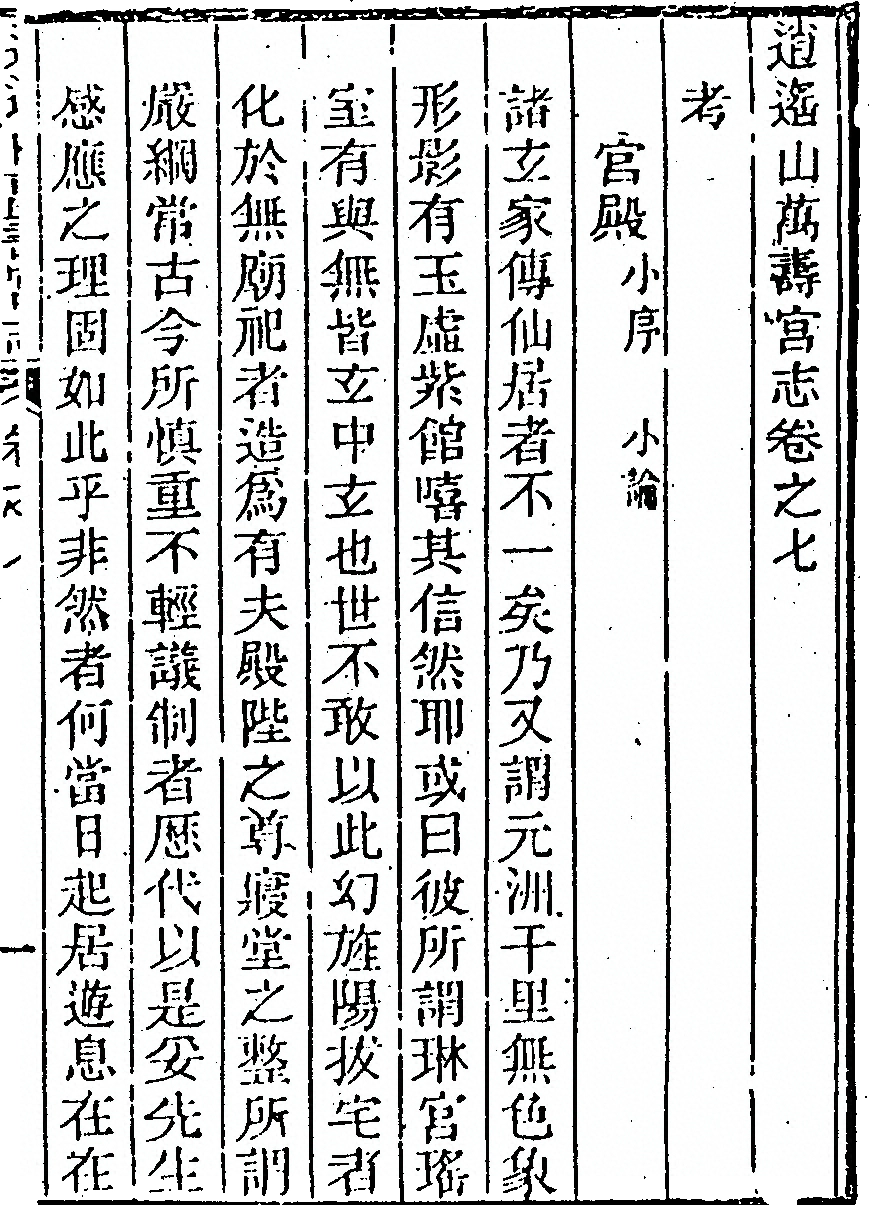 逍遙山萬壽宮志卷之七
考
宮殿 小序 小論
諸玄家傳仙居者不一矣乃又謂元洲千里無色象
形影有玉虛紫館嘻其信然耶或曰彼所謂琳宮瑤
室有與無皆玄中玄也世不敢以此幻旌陽拔宅者
化於無廟祀者造爲有夫殿陛之尊寢堂之整所謂
嚴綱常古今所慎重不輕議制者歷代以是妥先生
感應之理固如此乎非然者何當日起居遊息在在